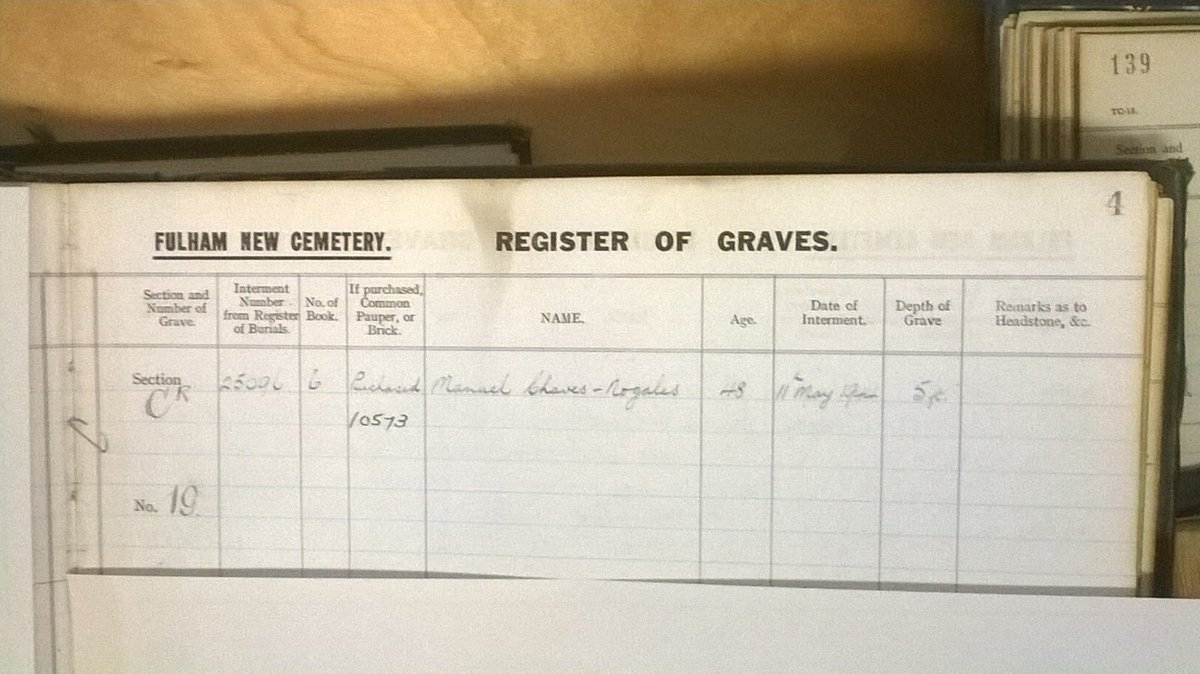 139
TC-18.
Section and
4
FULHAM NEW CEMETERY. REGISTER OF GRAVES.
Section and Number of Grave.
Interment Number from Register of Burials.
No. of Book.
If purchased, Common Pauper, or Brick.
NAME.
Age.
Date of Interment.
Depth of Grave
Remarks as to Headstone, &c.
Section CR 6 Manuel Chaves-Nogales 48 11th May
10573
No. 19